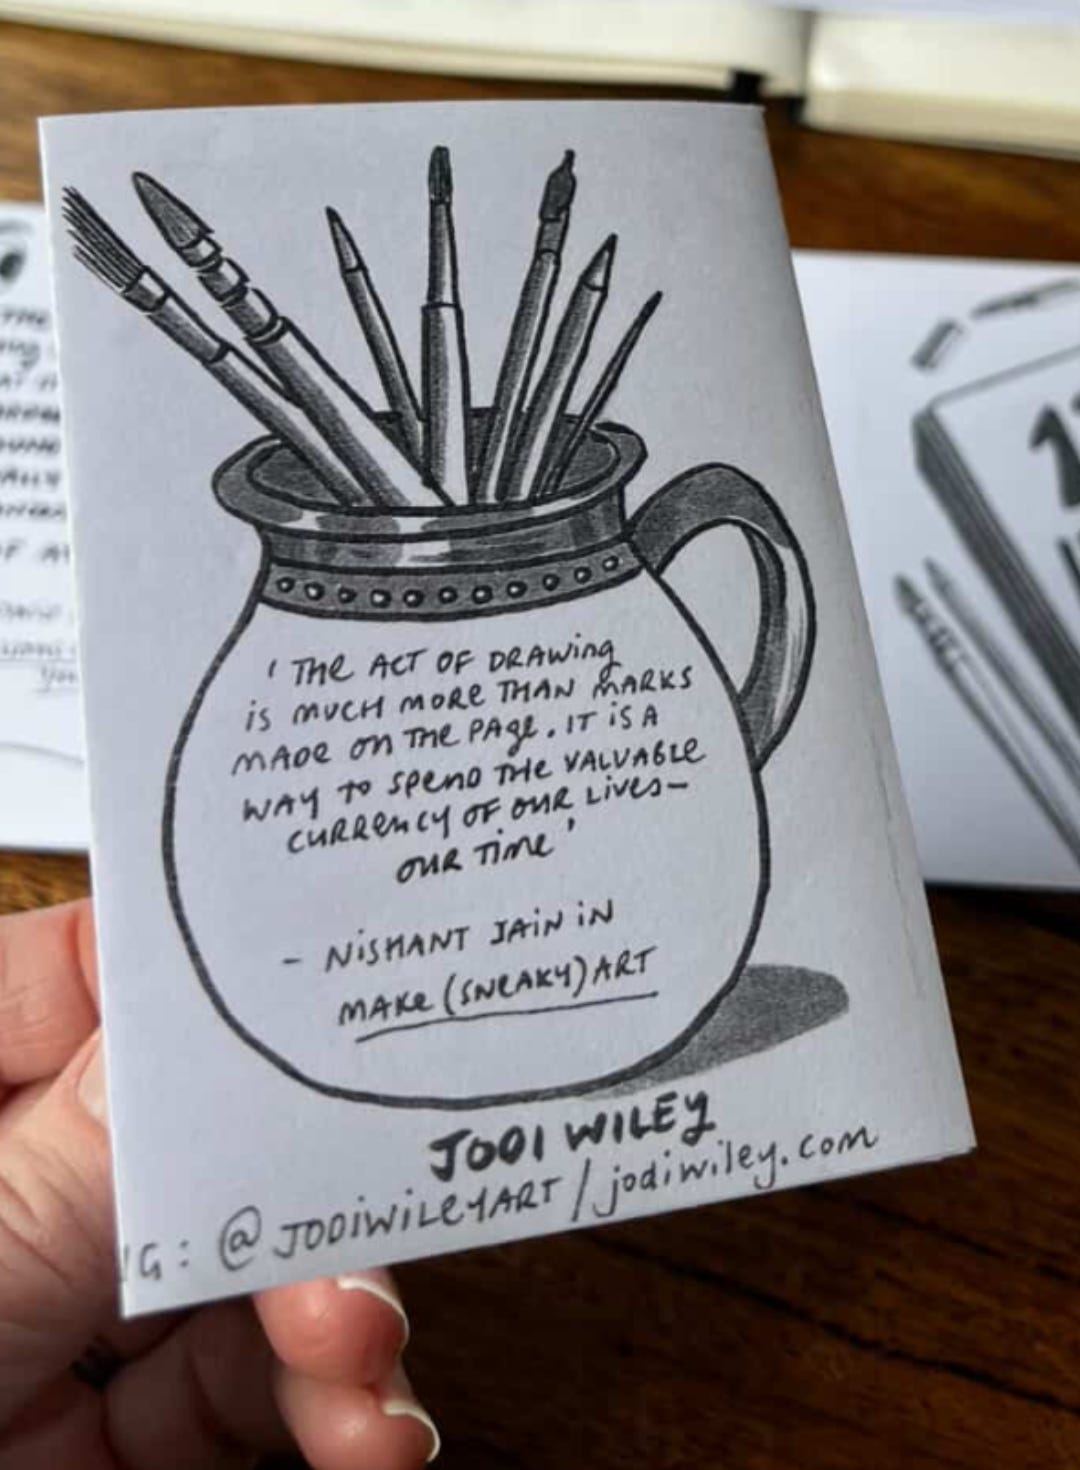 ' THE ACT OF DRAWING
IS MUCH MORE THAN MARKS
MADE ON THE PAGE. IT IS A
WAY TO SPEND THE VALUABLE
CURRENCY OF OUR LIVES-
OUR TIME'
- NISHANT JAIN IN
MAKE (SNEAKY) ART
JODI WILEY
IG: @JODIWILEYART / jodiwiley.com
THE
OF